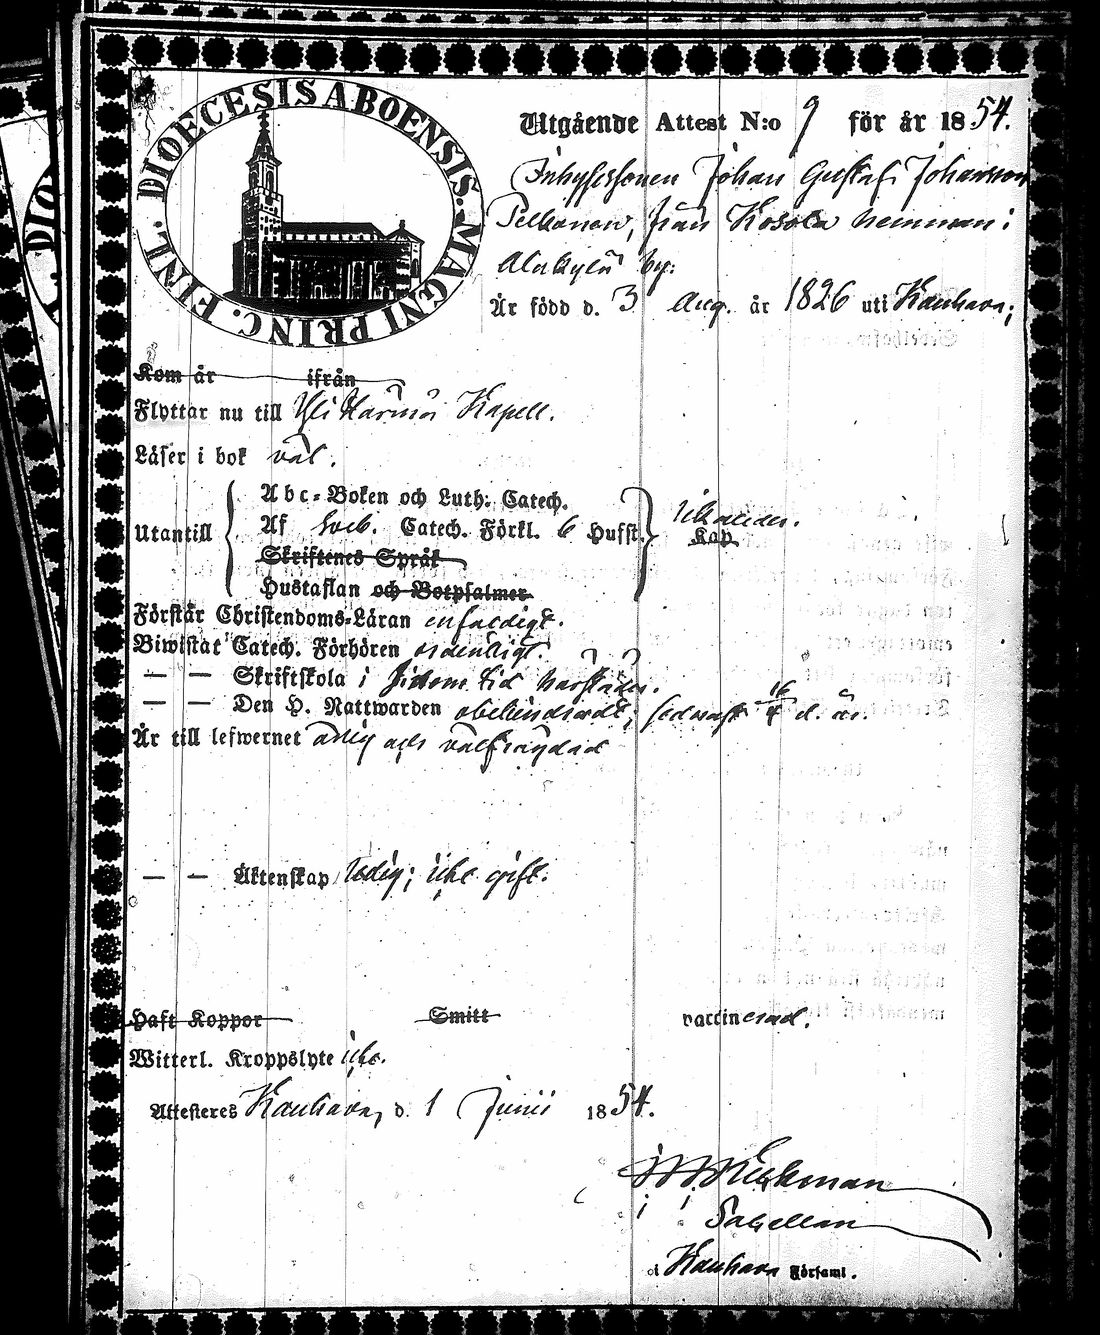 DIOECESIS ABOENSIS. MAGNI PRINC. FINL.
Utgående Attest N:o 9 för år 1854.
Inhysessonen Johan Gustaf Johansson
från Kosola hemman i
Alakylä by:
Är född d. 3 Aug. år 1826 uti Kauhava;
Kom år ifrån
Flyttar nu till Yli Härmä Kapell.
Läser i bok väl.
Abc-Boken och Luth. Catech.
Utantill Af Sveb. Catech. Förkl. 6 Hufst. Kap.
Skriftenes Språk
Hustaflan och Botpsalmer
Förstår Christendoms-Läran enfaldigt.
Biwistat Catech. Förhören ordentligt.
— — Skriftskola i sidom tid
— — Den H. Nattwarden obehindradt; sednast 16/4 d. år.
Är till lefwernet ärlig och välfrägdad
— — Äktenskap ledig; icke gift.
Haft Koppor Smitt vaccinerad.
Witterl. Kroppslyte icke.
Attesteres Kauhava, d. 1 Junii 1854.
i Kauhava Församl.